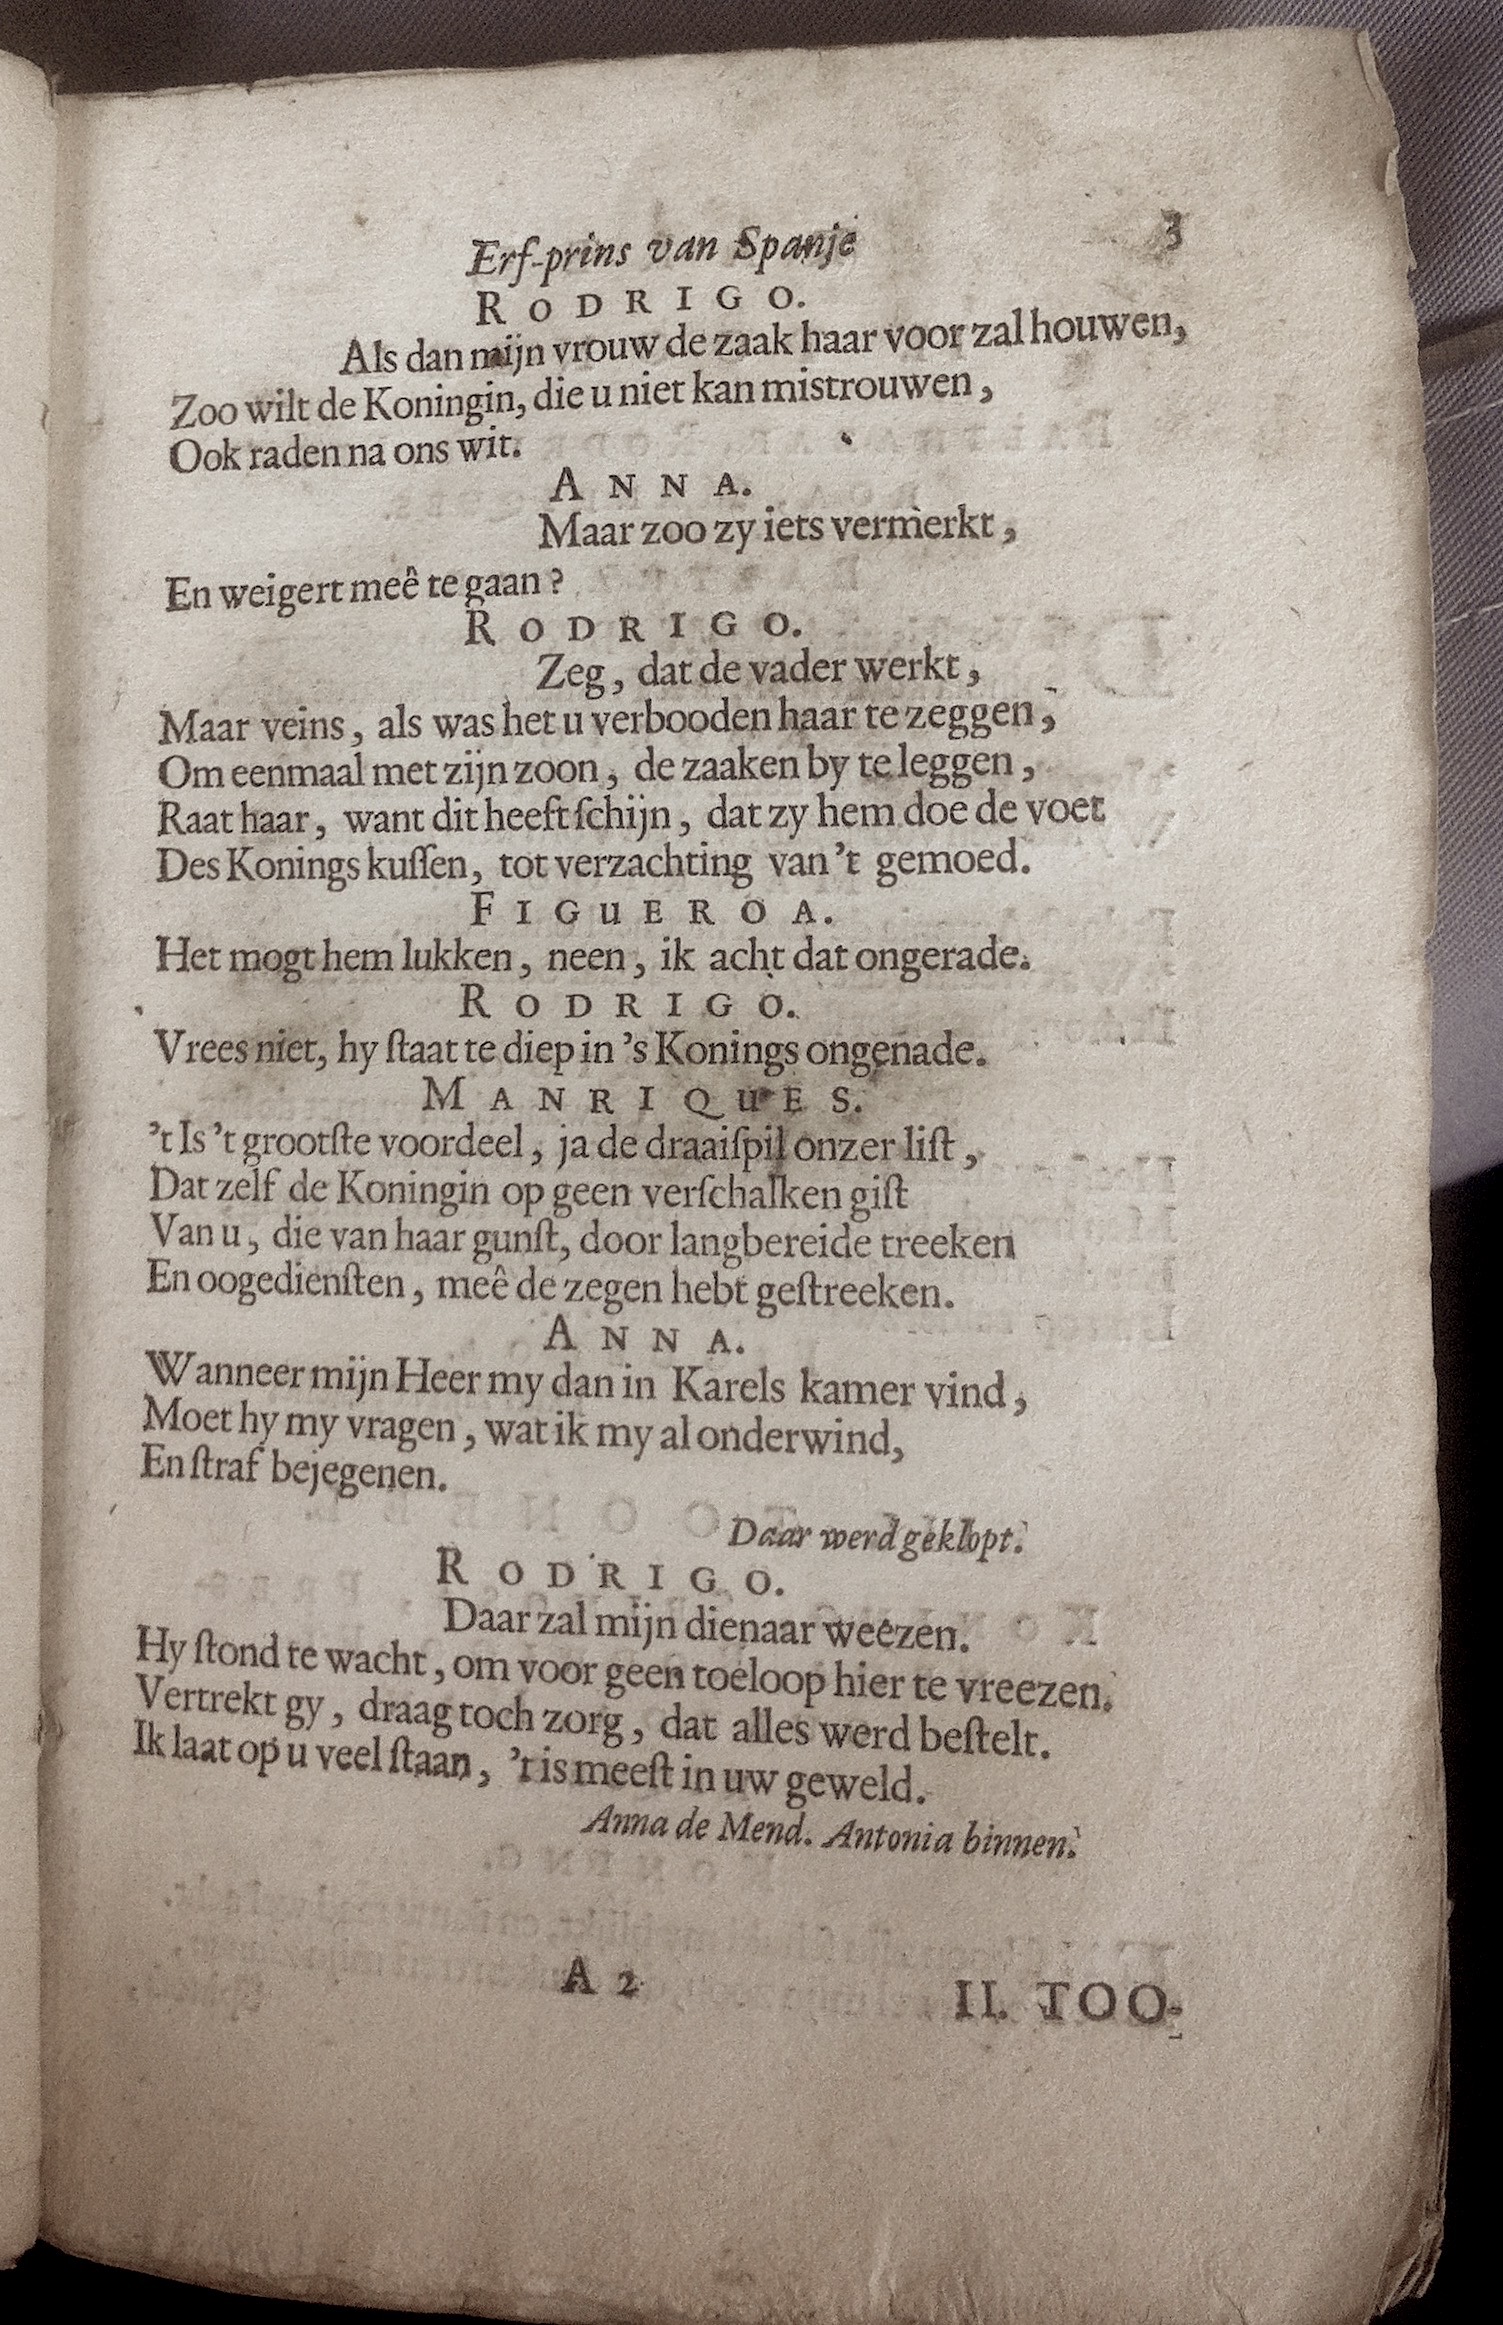 Erf-prins van Spanje 3
RODRIGO.
Als dan mijn vrouw de zaak haar voor zal houwen,
Zoo wilt de Koningin, die u niet kan mistrouwen,
Ook raden na ons wit.
ANNA.
Maar zoo zy iets vermerkt,
En weigert meê te gaan?
RODRIGO.
Zeg, dat de vader werkt,
Maar veins, als was het u verbooden haar te zeggen,
Om eenmaal met zijn zoon, de zaaken by te leggen,
Raat haar, want dit heeft ſchijn, dat zy hem doe de voet
Des Konings kuſſen, tot verzachting van 't gemoed.
FIGUEROA.
Het mogt hem lukken, neen, ik acht dat ongerade.
RODRIGO.
Vrees niet, hy ſtaat te diep in 's Konings ongenade.
MANRIQUES.
't Is 't grootſte voordeel, ja de draaiſpil onzer liſt,
Dat zelf de Koningin op geen verſchalken giſt
Van u, die van haar gunſt, door langbereide treeken
En oogedienſten, meê de zegen hebt geſtreeken.
ANNA.
Wanneer mijn Heer my dan in Karels kamer vind,
Moet hy my vragen, wat ik my al onderwind,
En ſtraf bejegenen.
Daar werd geklopt.
RODRIGO.
Daar zal mijn dienaar weezen.
Hy ſtond te wacht, om voor geen toeloop hier te vreezen.
Vertrekt gy, draag toch zorg, dat alles werd beſtelt.
Ik laat op u veel ſtaan, 't is meeſt in uw geweld.
Anna de Mend. Antonia binnen.
A 2 II. TOO-